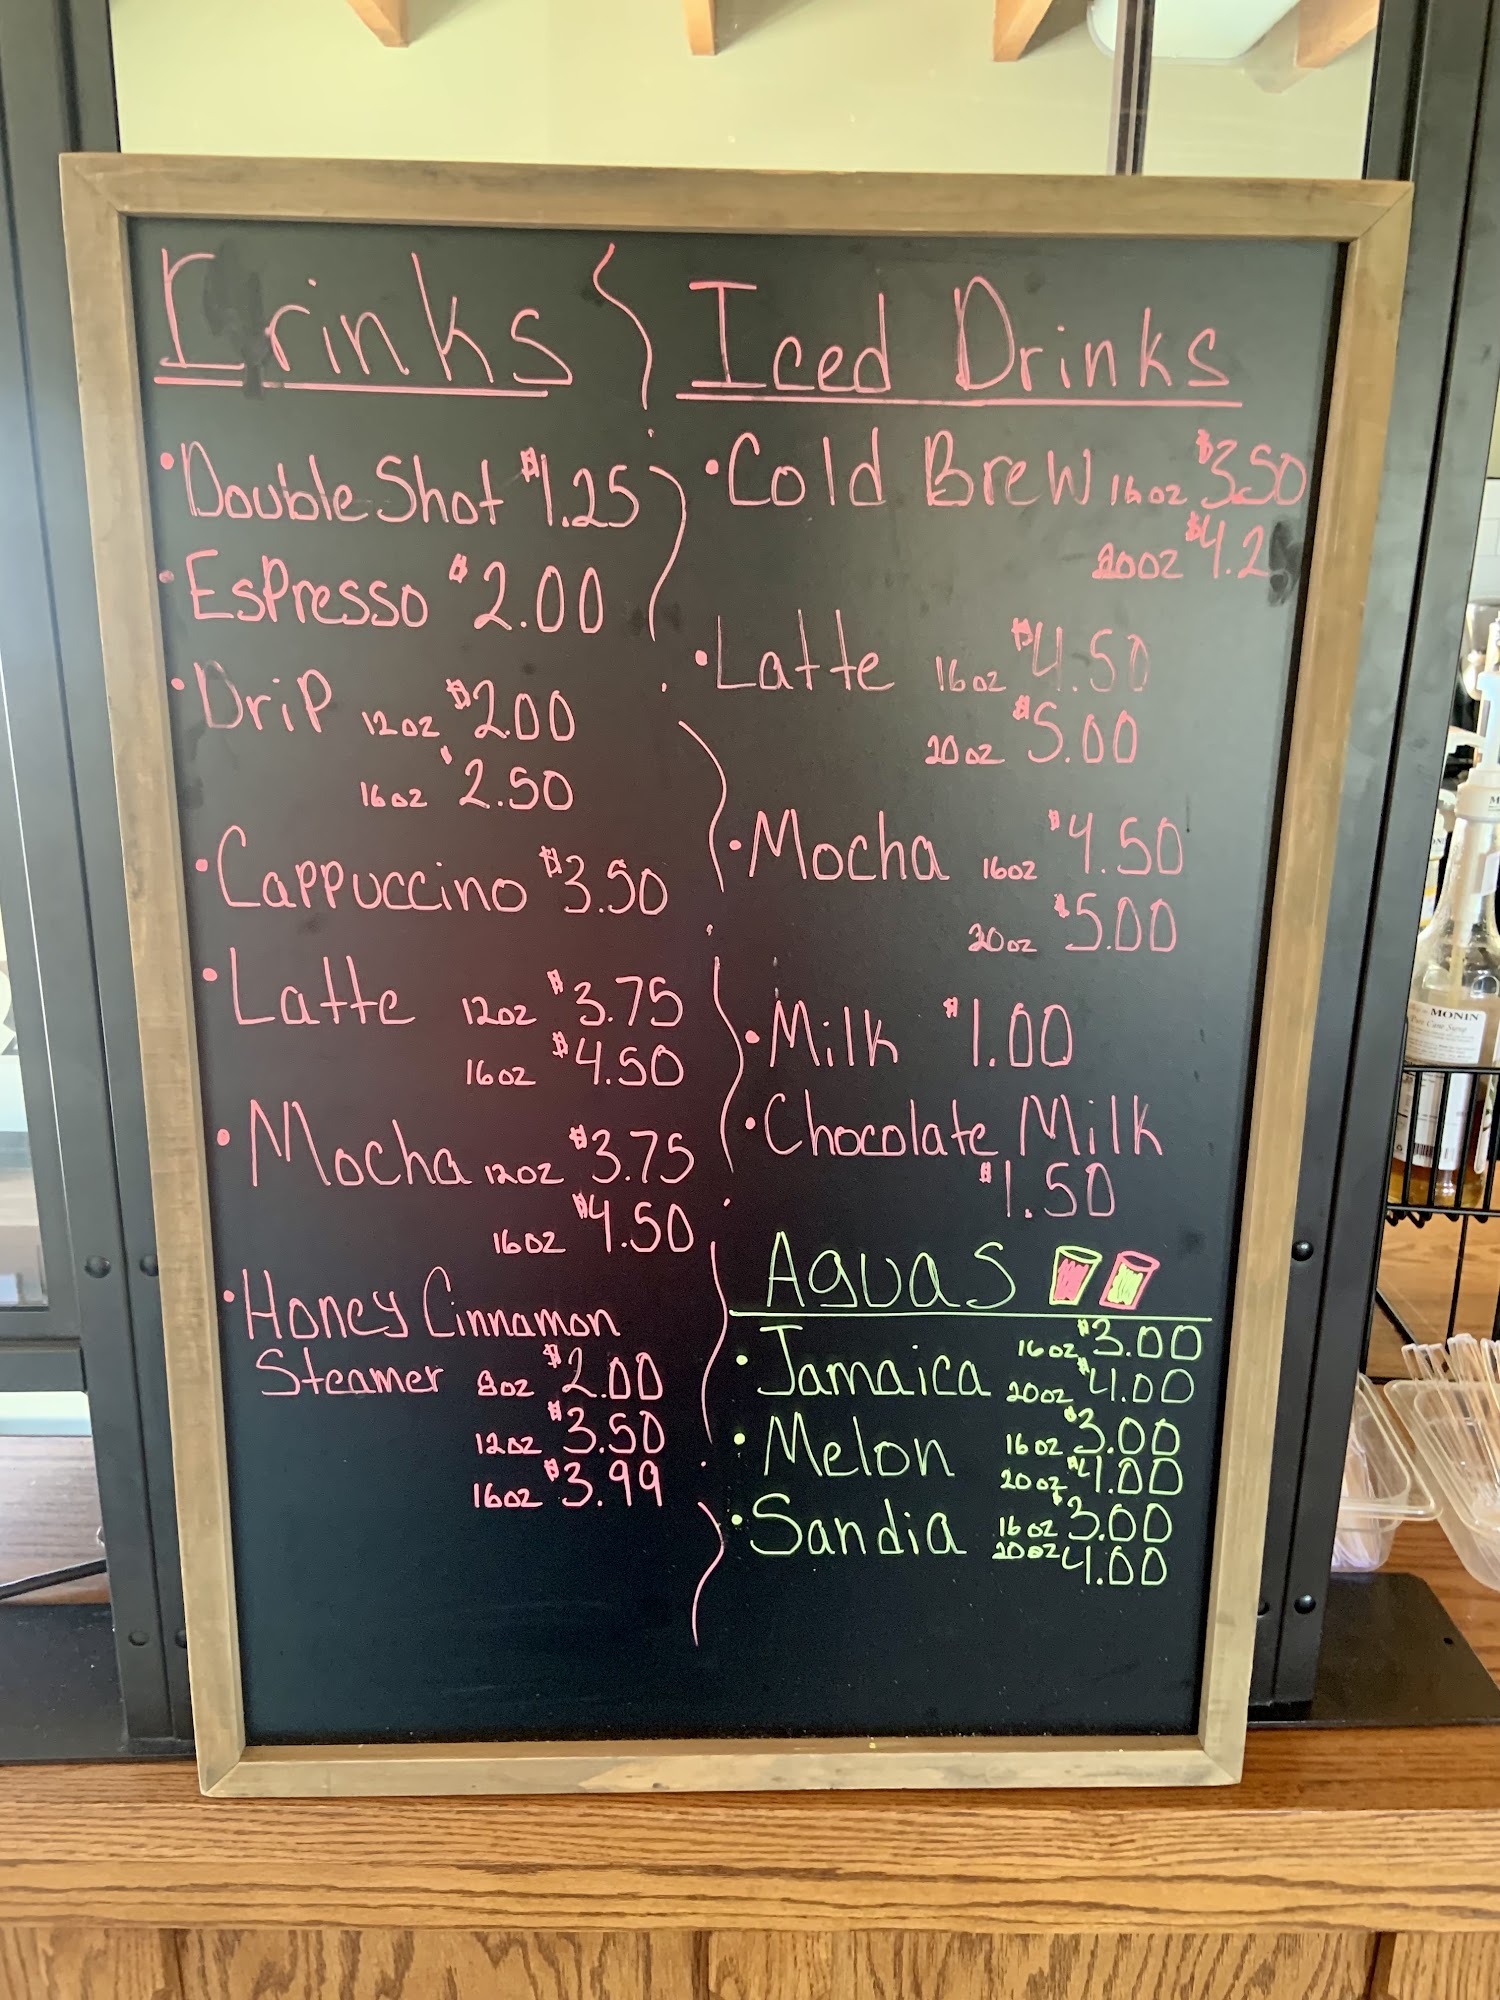 Drinks
• Double Shot $1.25
• Espresso $2.00
• Drip 12oz $2.00
16oz $2.50
• Cappuccino $3.50
• Latte 12oz $3.75
16oz $4.50
• Mocha 12oz $3.75
16oz $4.50
• Honey Cinnamon
Steamer 8oz $2.00
12oz $3.50
16oz $3.99
Iced Drinks
• Cold Brew 16oz $3.50
20oz $4.2
• Latte 16oz $4.50
20oz $5.00
• Mocha 16oz $4.50
20oz $5.00
• Milk $1.00
• Chocolate Milk
$1.50
Aguas
• Jamaica 16oz $3.00
20oz $4.00
• Melon 16oz $3.00
20oz $4.00
• Sandia 16oz $3.00
20oz 4.00
MONIN
Pure Cane Syrup